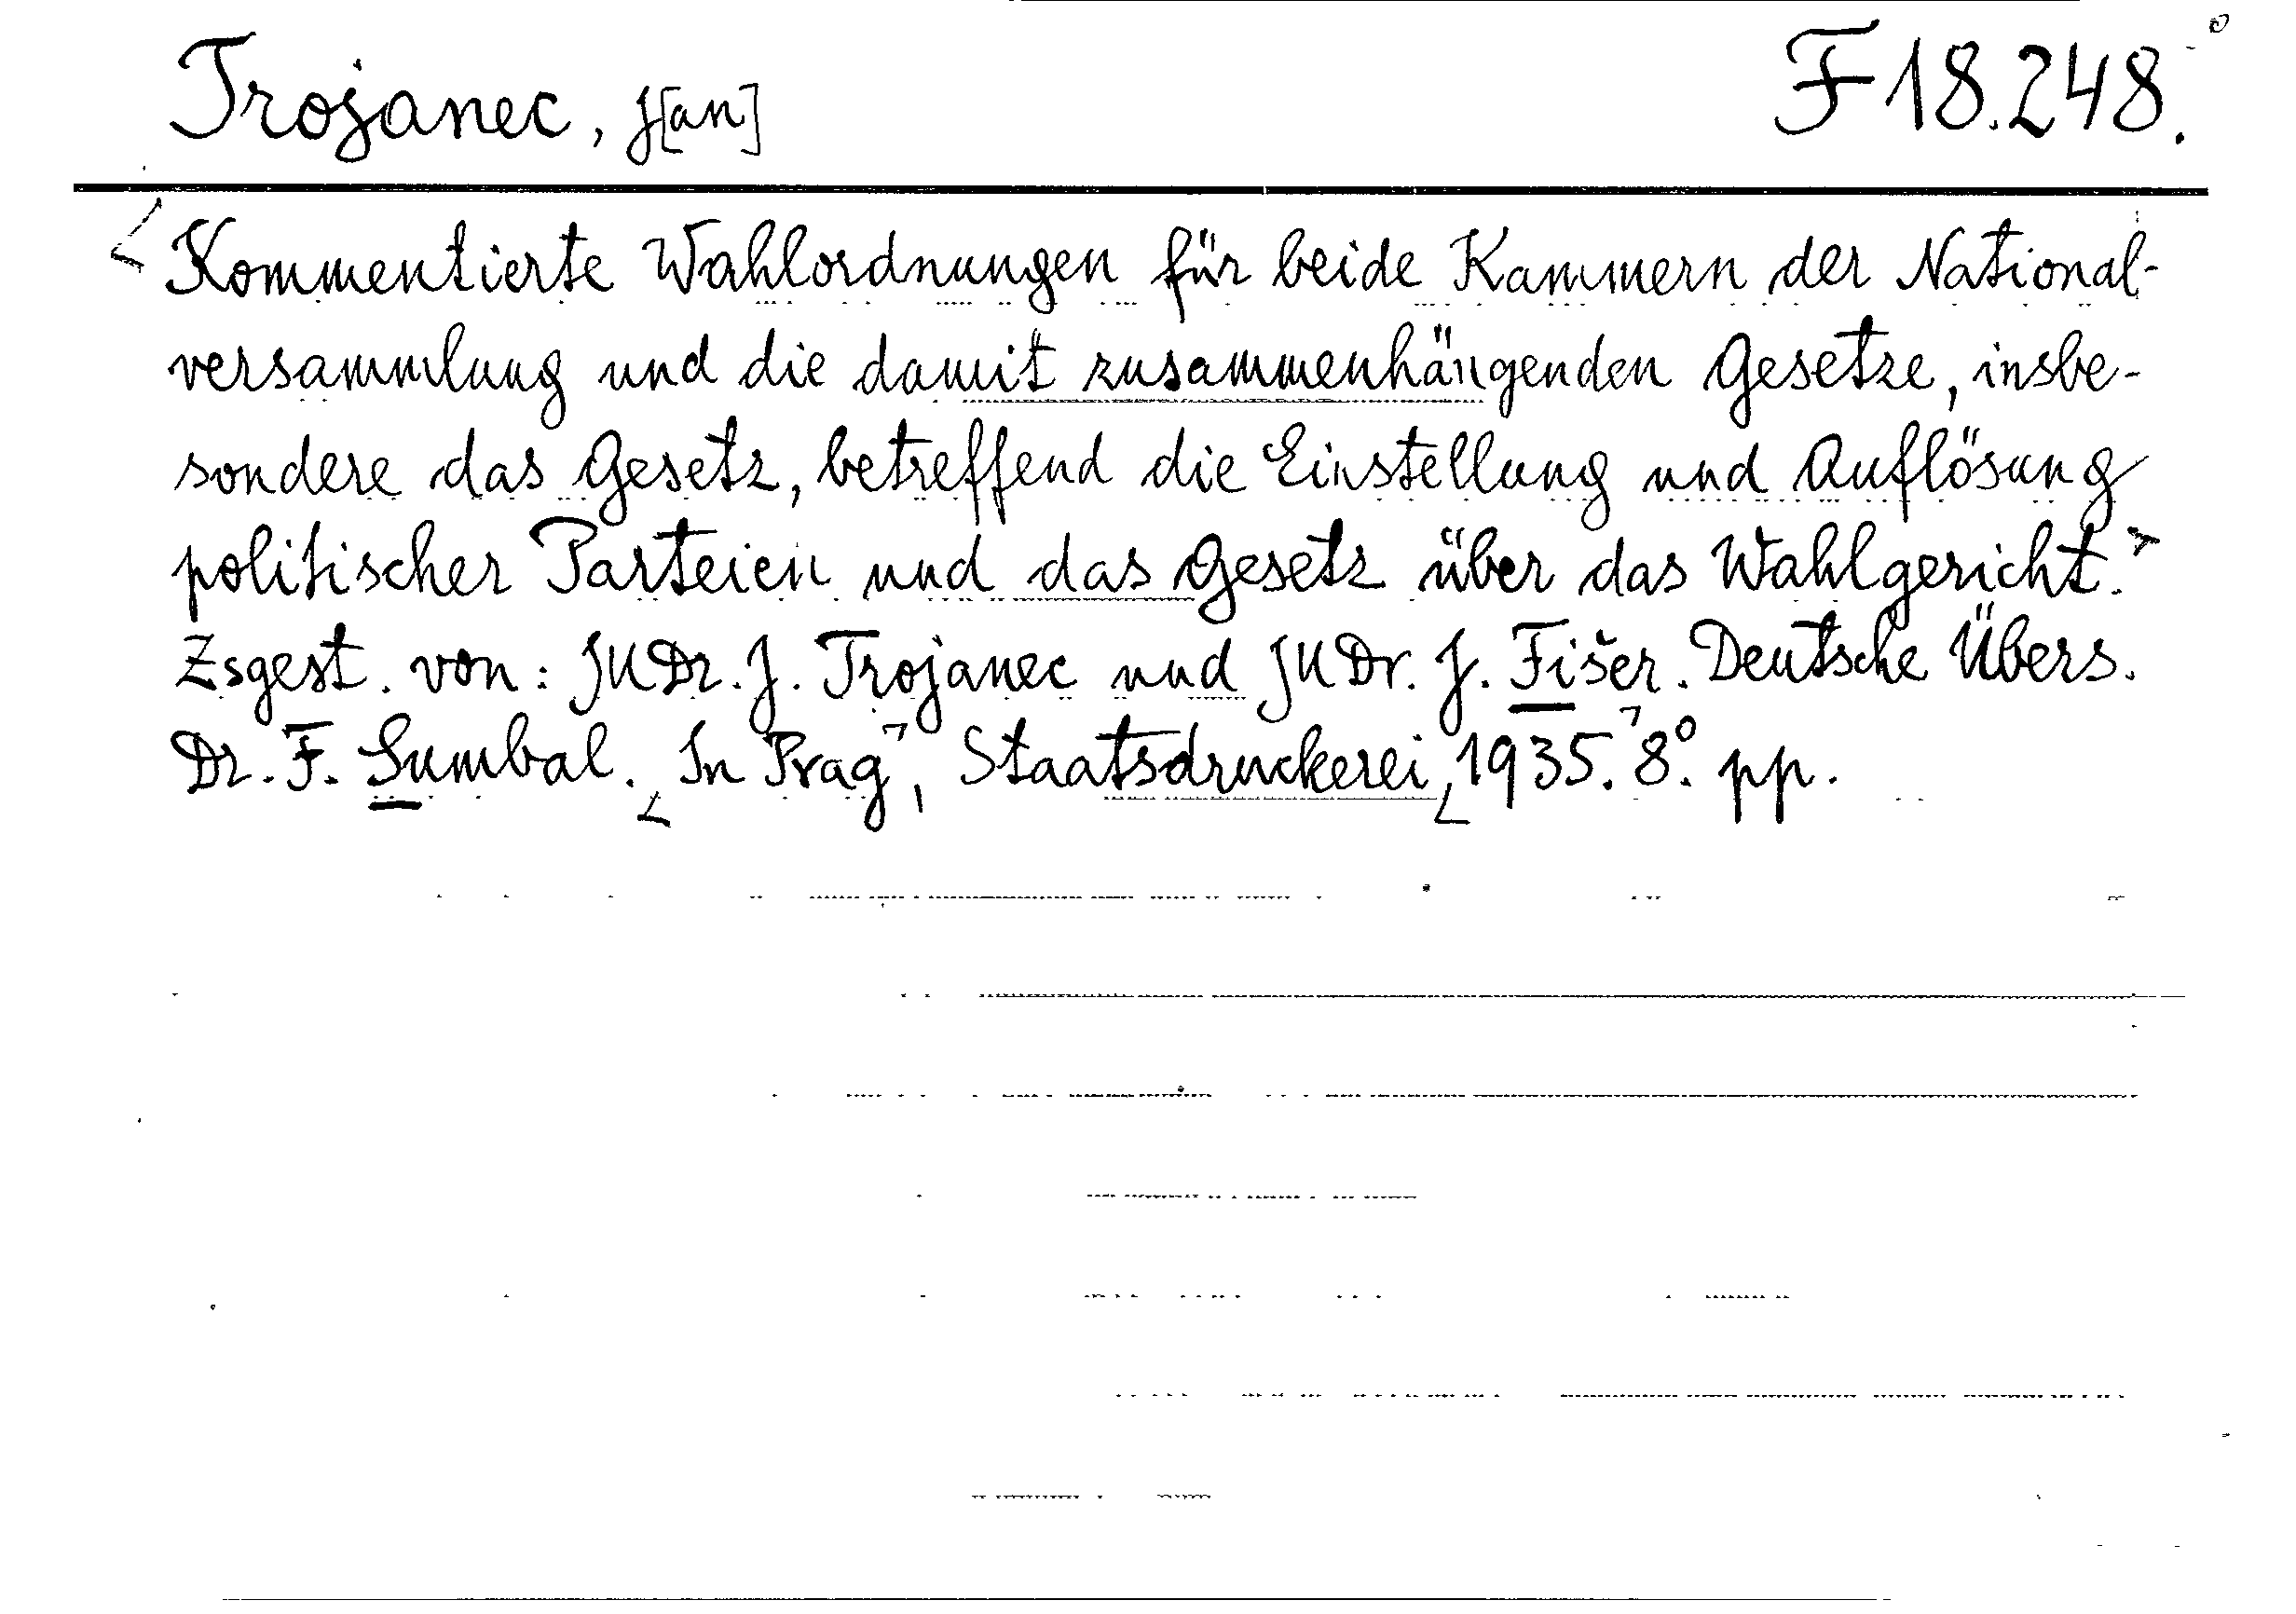 Trojanec, J[an] F 18.248.
Kommentierte Wahlordnungen für beide Kammern der National-
versammlung und die damit zusammenhängenden Gesetze, insbe-
sondere das Gesetz, betreffend die Einstellung und Auflösung
politischer Parteien und das Gesetz über das Wahlgericht.
Zsgest. von: JUDr. J. Trojanec und JUDr. J. Fišer. Deutsche Übers.
Dr. F. Sumbal. In Prag, Staatsdruckerei, 1935. 8°. pp.